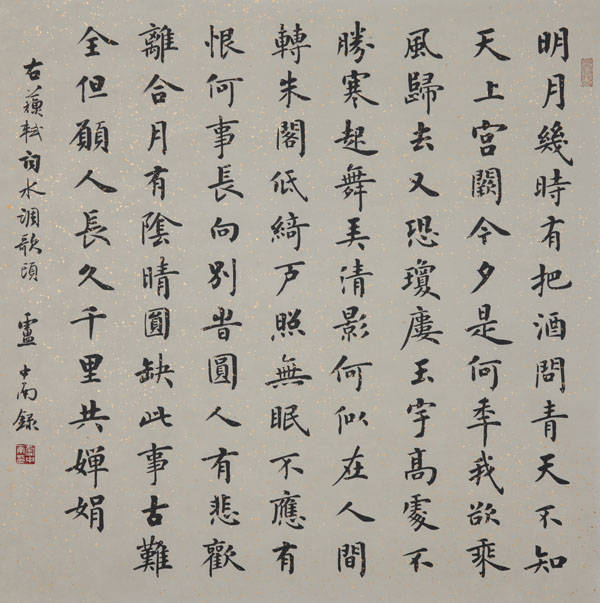 明月幾時有把酒問青天不知
天上宮闕今夕是何秊我欲乘
風歸去又恐瓊廔玉宇高處不
勝寒起舞弄清影何似在人間
轉朱閣低綺戶照無眠不應有
恨何事長向別旹圓人有悲歡
離合月有陰晴圓缺此事古難
全但願人長久千里共嬋娟
右蘓軾詞水調歌頭 盧中南錄